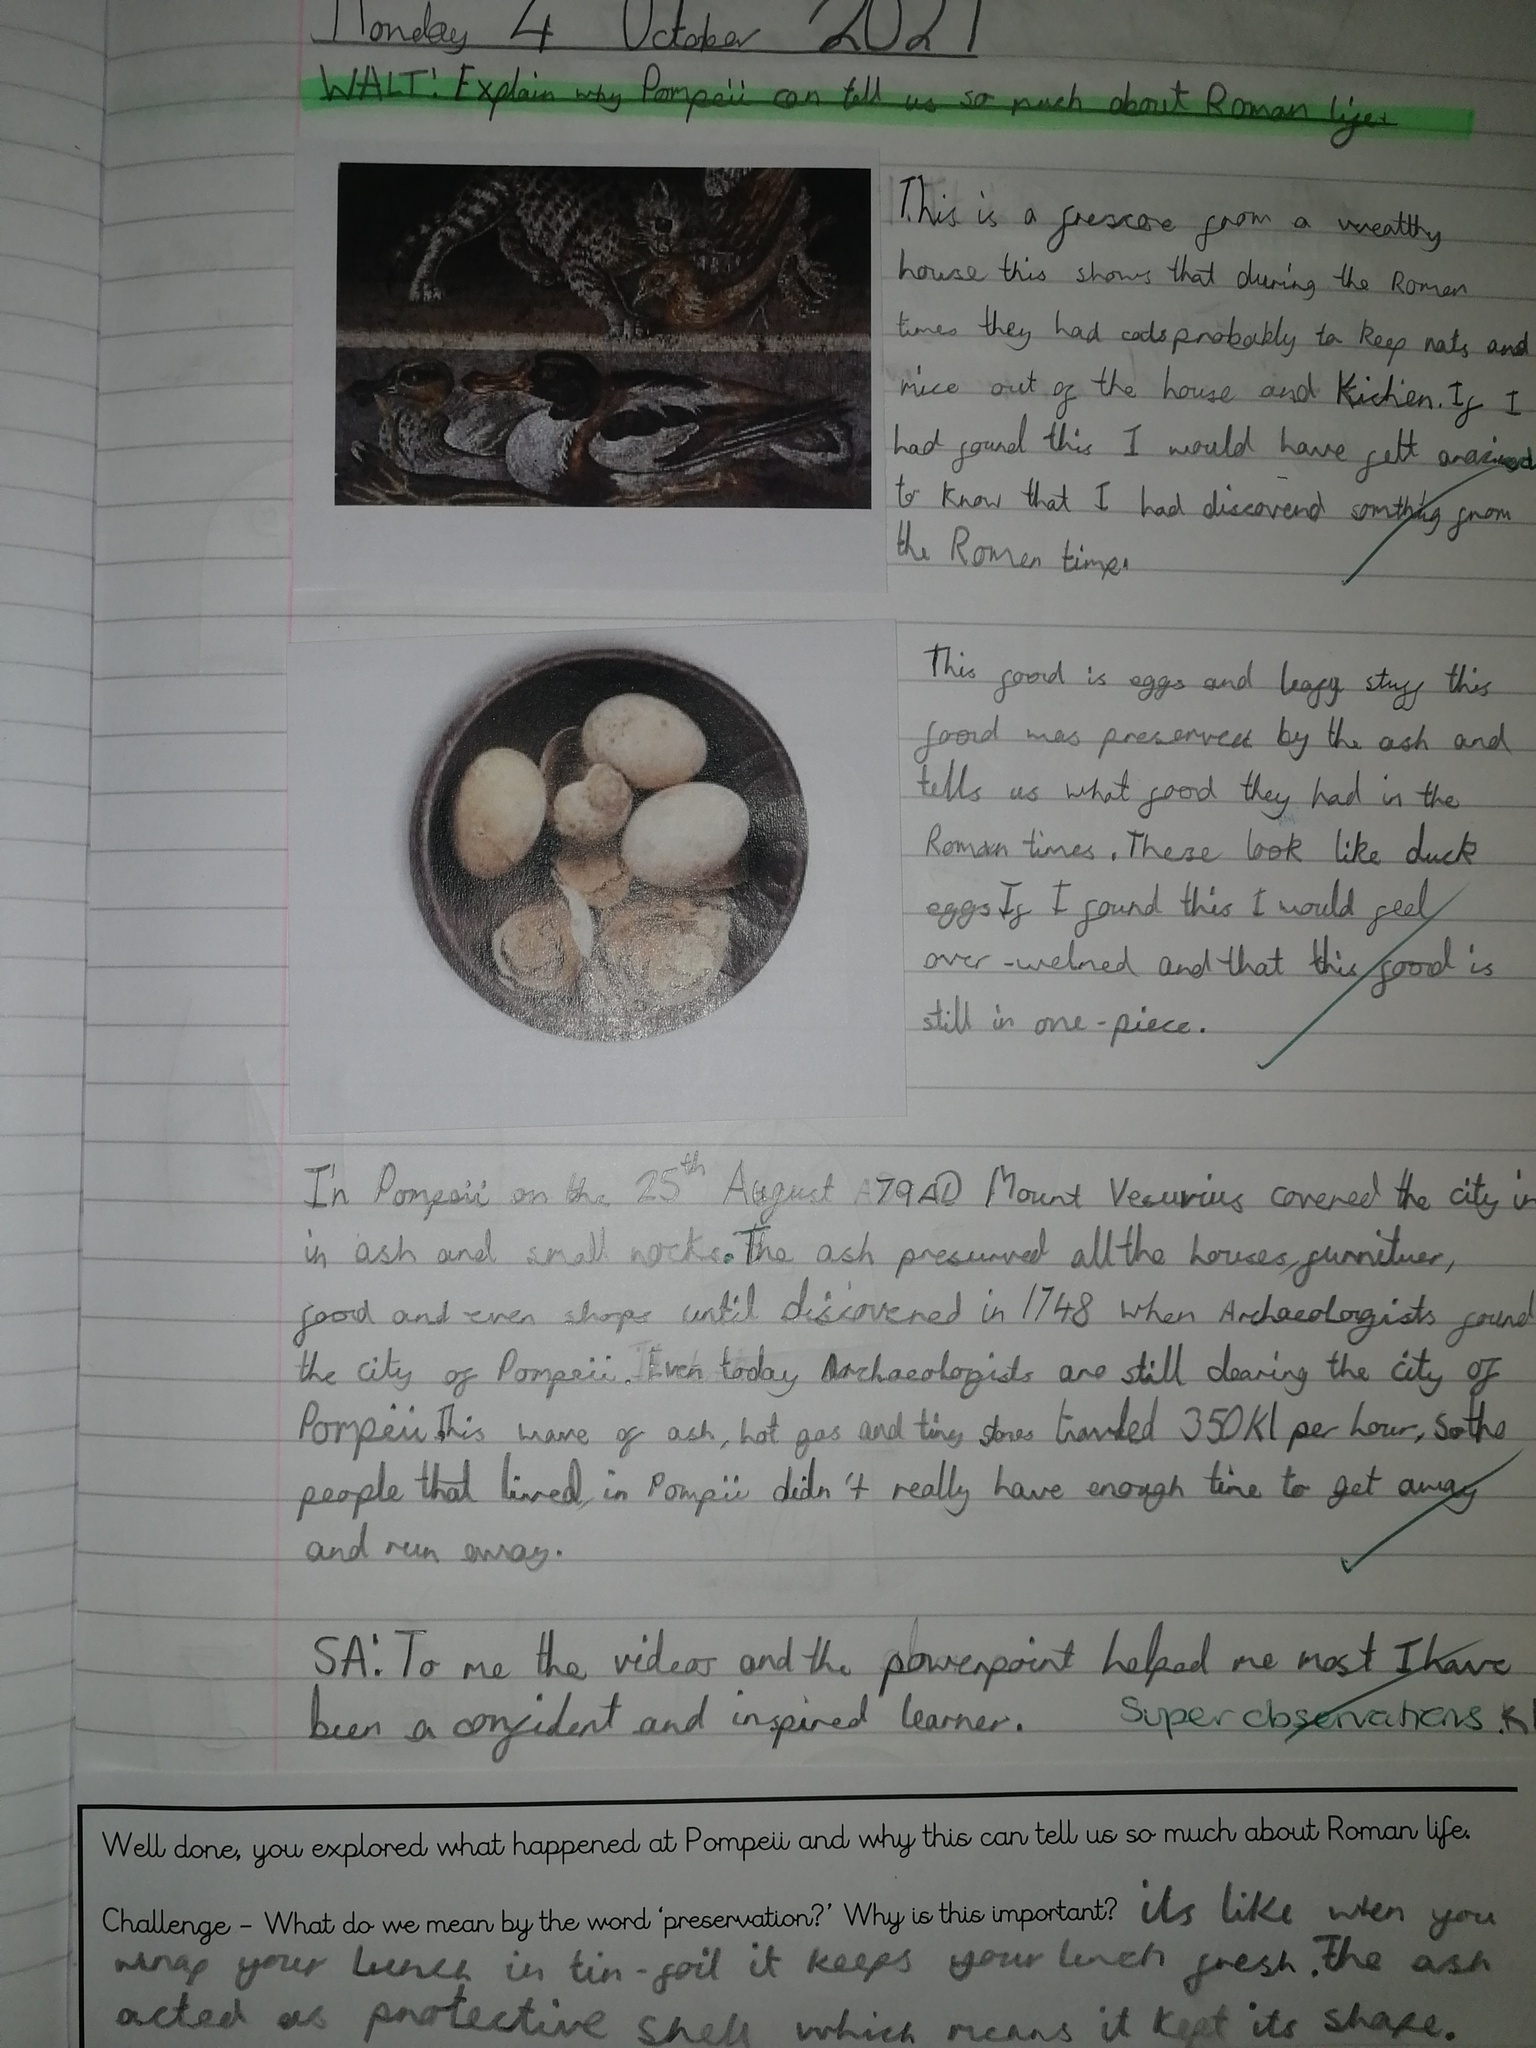 Monday 4 October 2021
WALT: Explain why Pompeii can tell us so much about Roman life.
This is a frescore from a wealthy
house this shows that during the Roman
times they had cats probably to keep rats and
mice out of the house and Kichen. If I
had found this I would have felt
to know that I had discoverd somthig from
the Roman time.
This food is eggs and leafy stuff this
food was preserved by the ash and
tells us what food they had in the
Roman times. These look like duck
eggs If I found this I would feel
over-welmed and that this food is
still in one-piece.
In Pompeii on the 25th August 79AD Mount Vesuvius covered the city in
in ash and small rocks. The ash presurved all the houses, furnituer,
food and even shops until discovered in 1748 when Archaeologists found
the city of Pompeii. Even today Archaeologists are still clearing the city of
Pompeii. This wave of ash, hot gas and tiny stones travled 350Kl per hour, so the
people that lived in Pompeii didn't really have enough time to get away
and run away.
SA: To me the videos and the powerpoint helped me most I have
been a confident and inspired learner. Super observations.
Well done, you explored what happened at Pompeii and why this can tell us so much about Roman life.
Challenge – What do we mean by the word 'preservation?' Why is this important? its like wen you
wrap your lunch in tin-foil it keeps your lunch fresh. The ash
acted as protective shell which means it kept its shape.